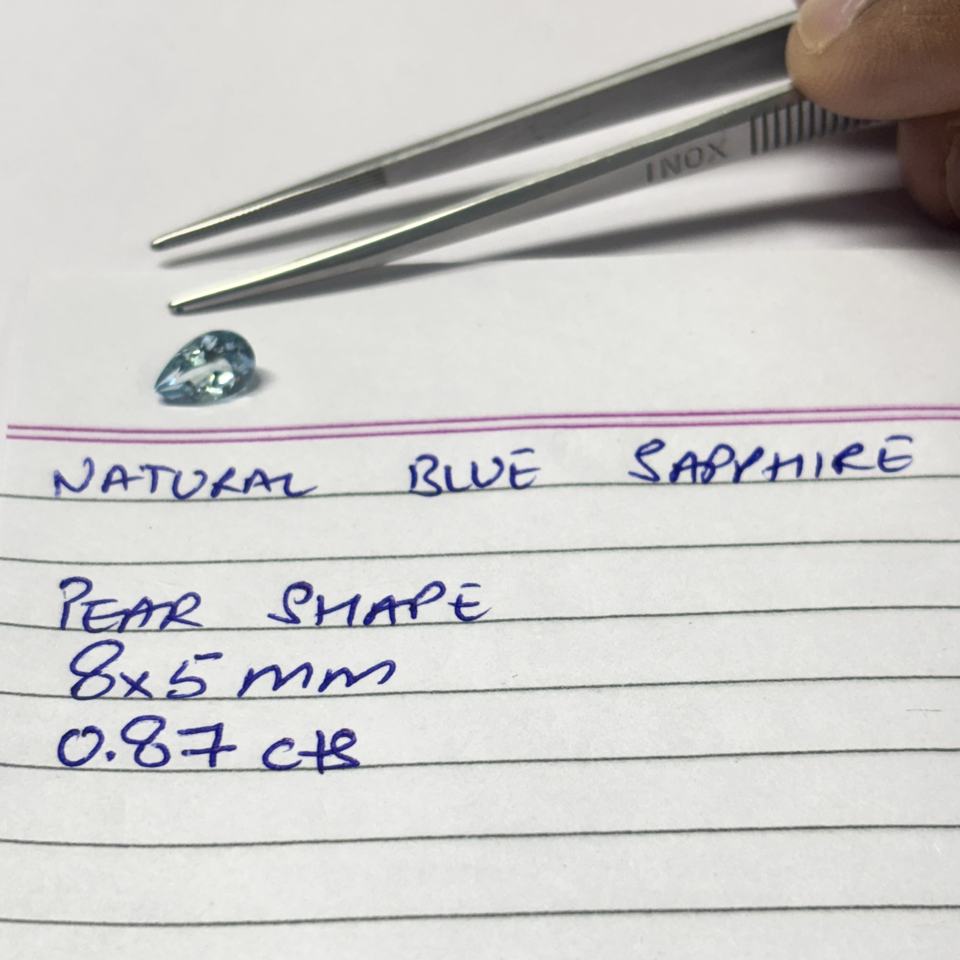 INOX
NATURAL BLUE SAPPHIRE
PEAR SHAPE
8x5 mm
0.87 cts